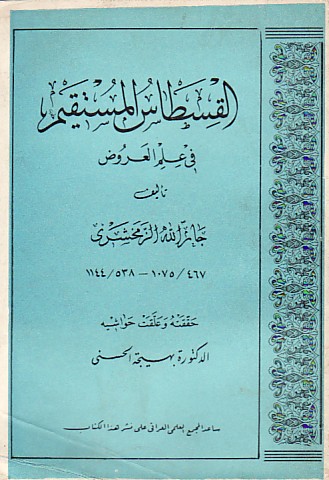 القسطاس المستقيم
في علم العروض
تأليف
جار الله الزمخشري
٤٦٧/١٠٧٥ – ٥٣٨/١١٤٤
حققته وعلقت حواشيه
الدكتورة بهيجة الحسني
ساعد المجمع العلمي العراقي على نشر هذا الكتاب